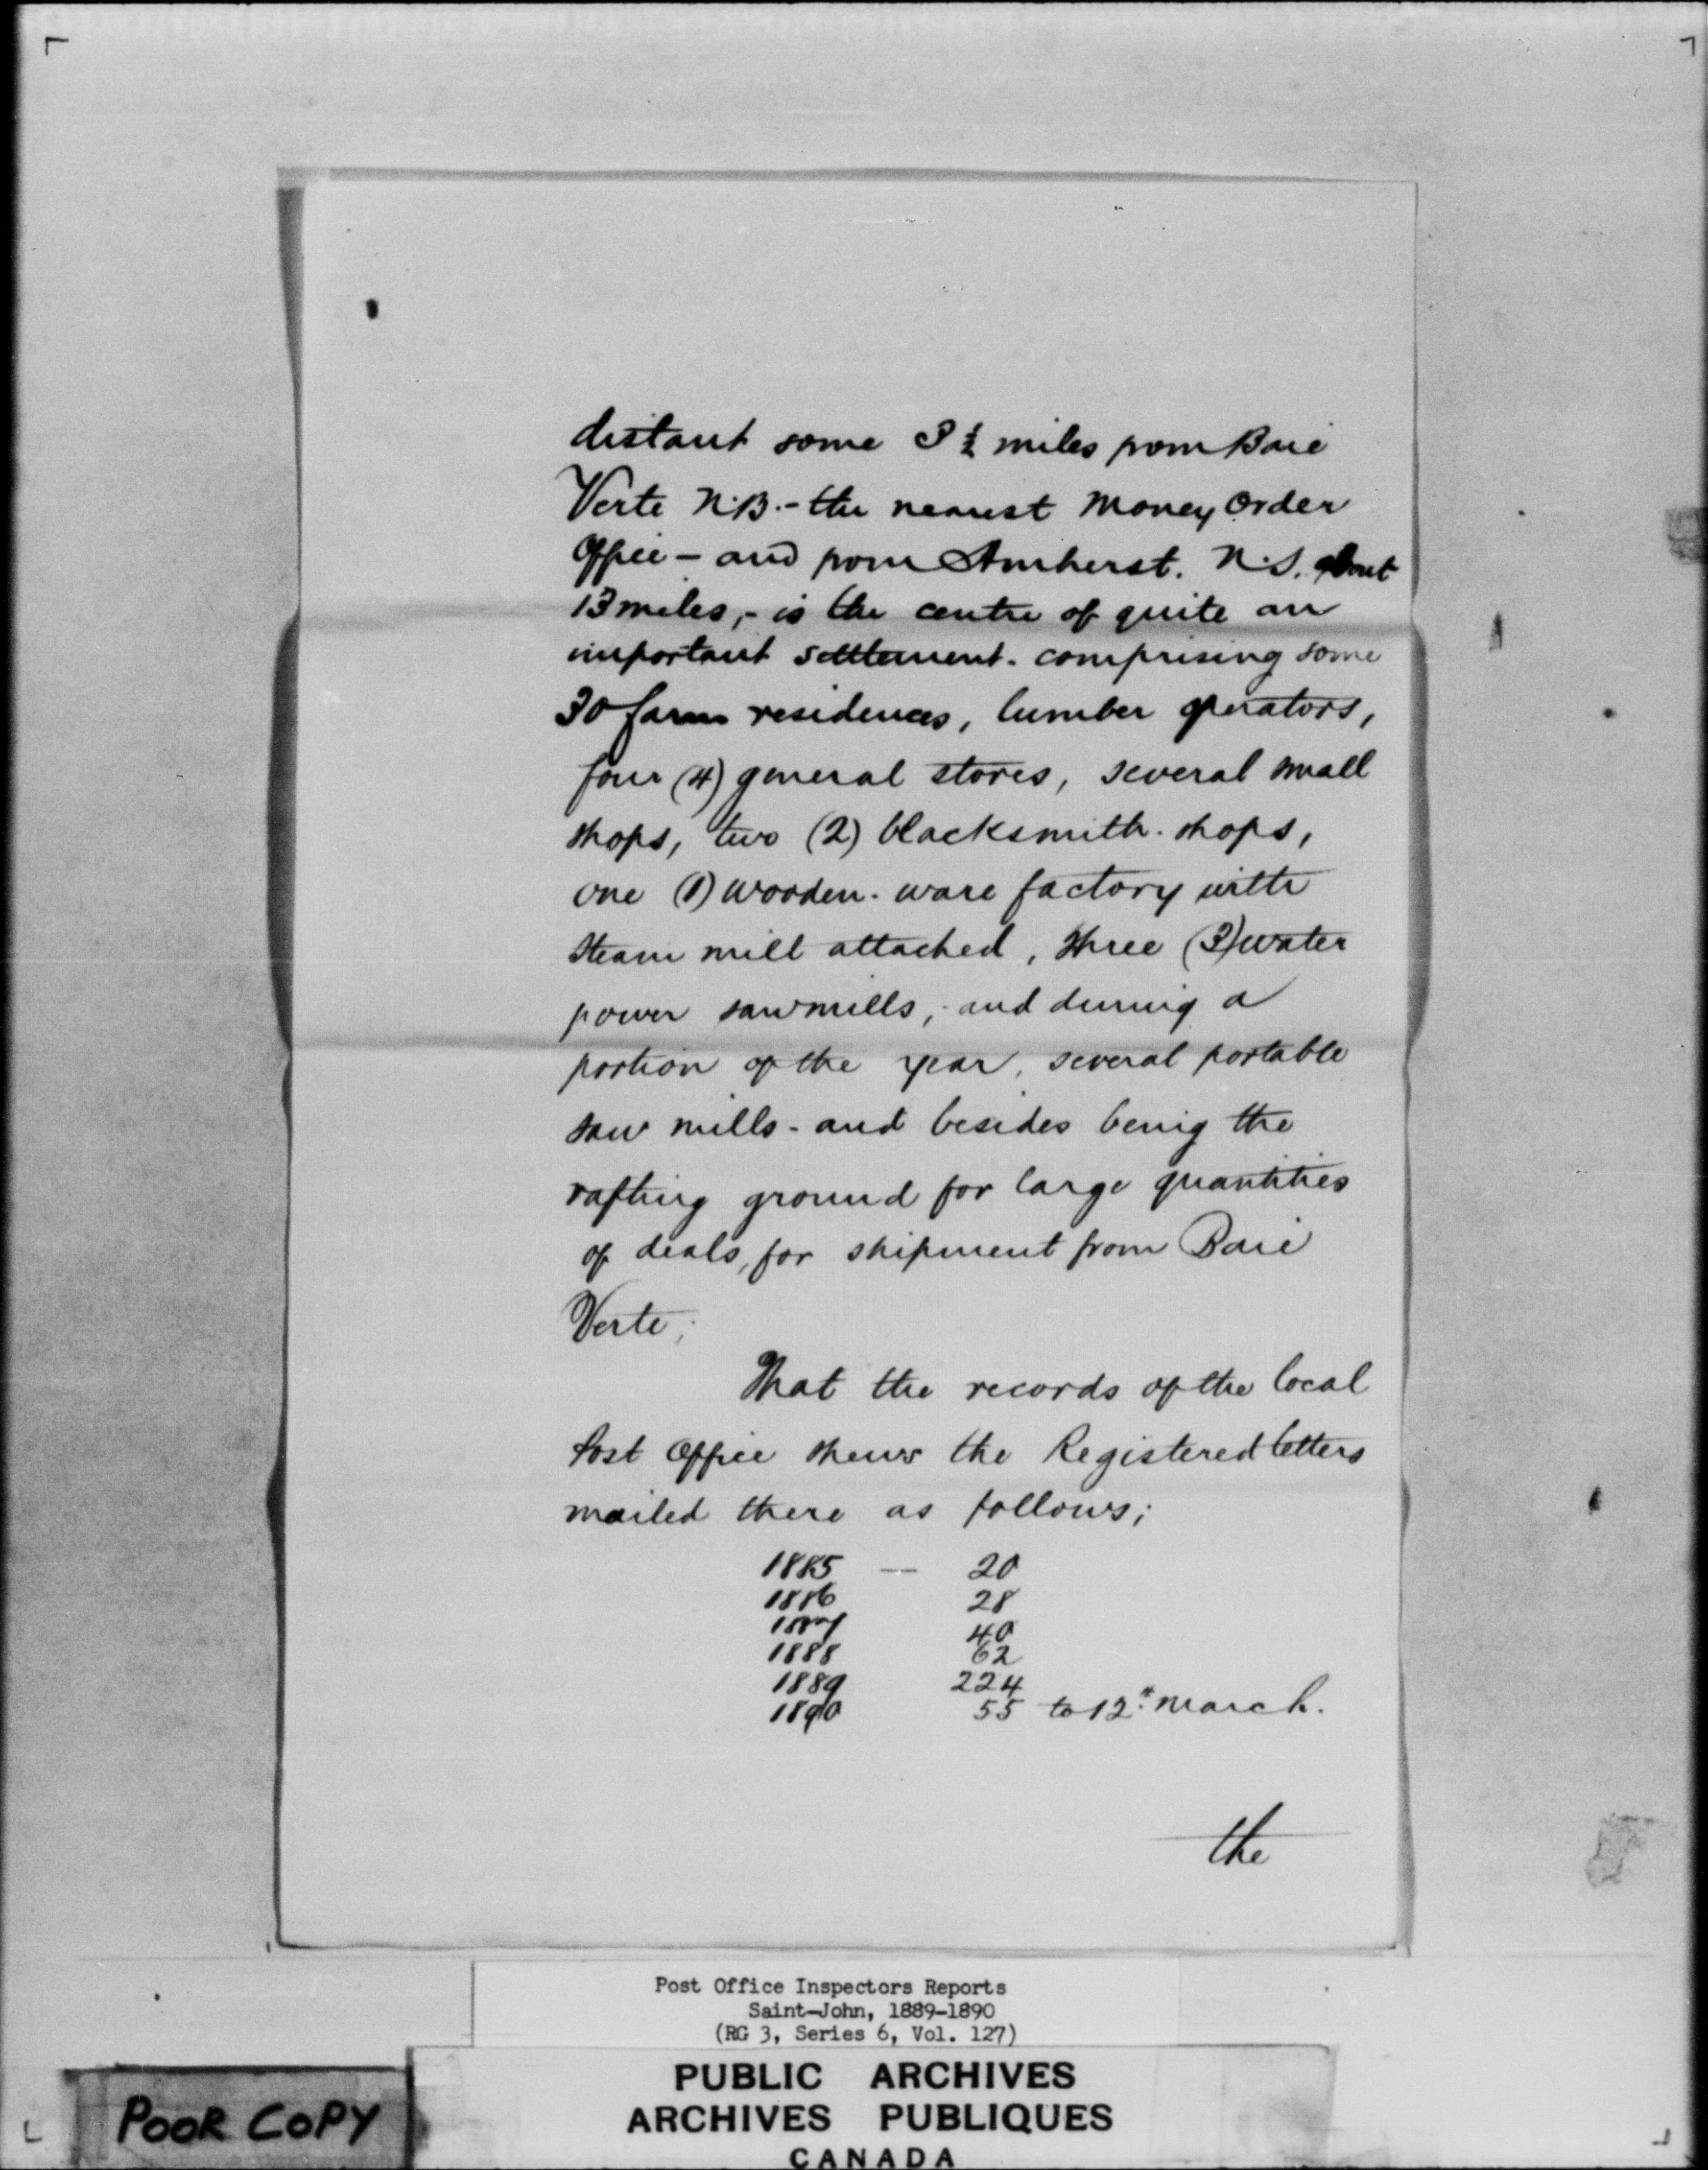 distant some 3 ½ miles from Baie
Verte N.B. - the nearest Money Order
Office - and from Amherst. N.S. about
13 miles, - is the centre of quite an
important settlement. comprising some
30 farm residences, lumber operators,
four (4) general stores, several small
shops, two (2) blacksmith. shops,
one (1) wooden. ware factory with
steam mill attached, three (3) water
power sawmills, and during a
portion of the year, several portable
saw mills - and besides being the
rafting ground for large quantities
of deals, for shipment from Baie
Verte;
That the records of the local
Post Office shews the Registered letters
mailed there as follows;
1885 — 20
1886 28
1887 40
1888 62
1889 224
1890 55 to 12th March.
the
Post Office Inspectors Reports
Saint-John, 1889-1890
(RG 3, Series 6, Vol. 127)
PUBLIC ARCHIVES
ARCHIVES PUBLIQUES
CANADA
POOR COPY